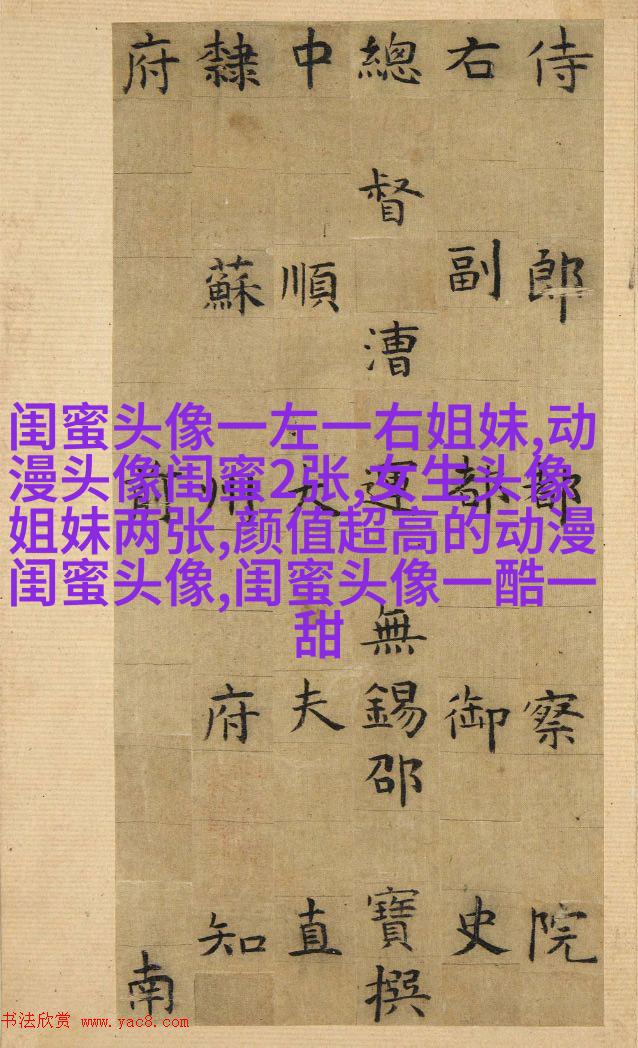 侍郎都察院
右副都御史
總督漕運無錫邵寶撰
中順大夫直
隸蘇州府知
府前南
闺蜜头像一左一右姐妹,动
漫头像闺蜜2张,女生头像
姐妹两张,颜值超高的动漫
闺蜜头像,闺蜜头像一酷一
甜
书法欣赏 www.yac8.com